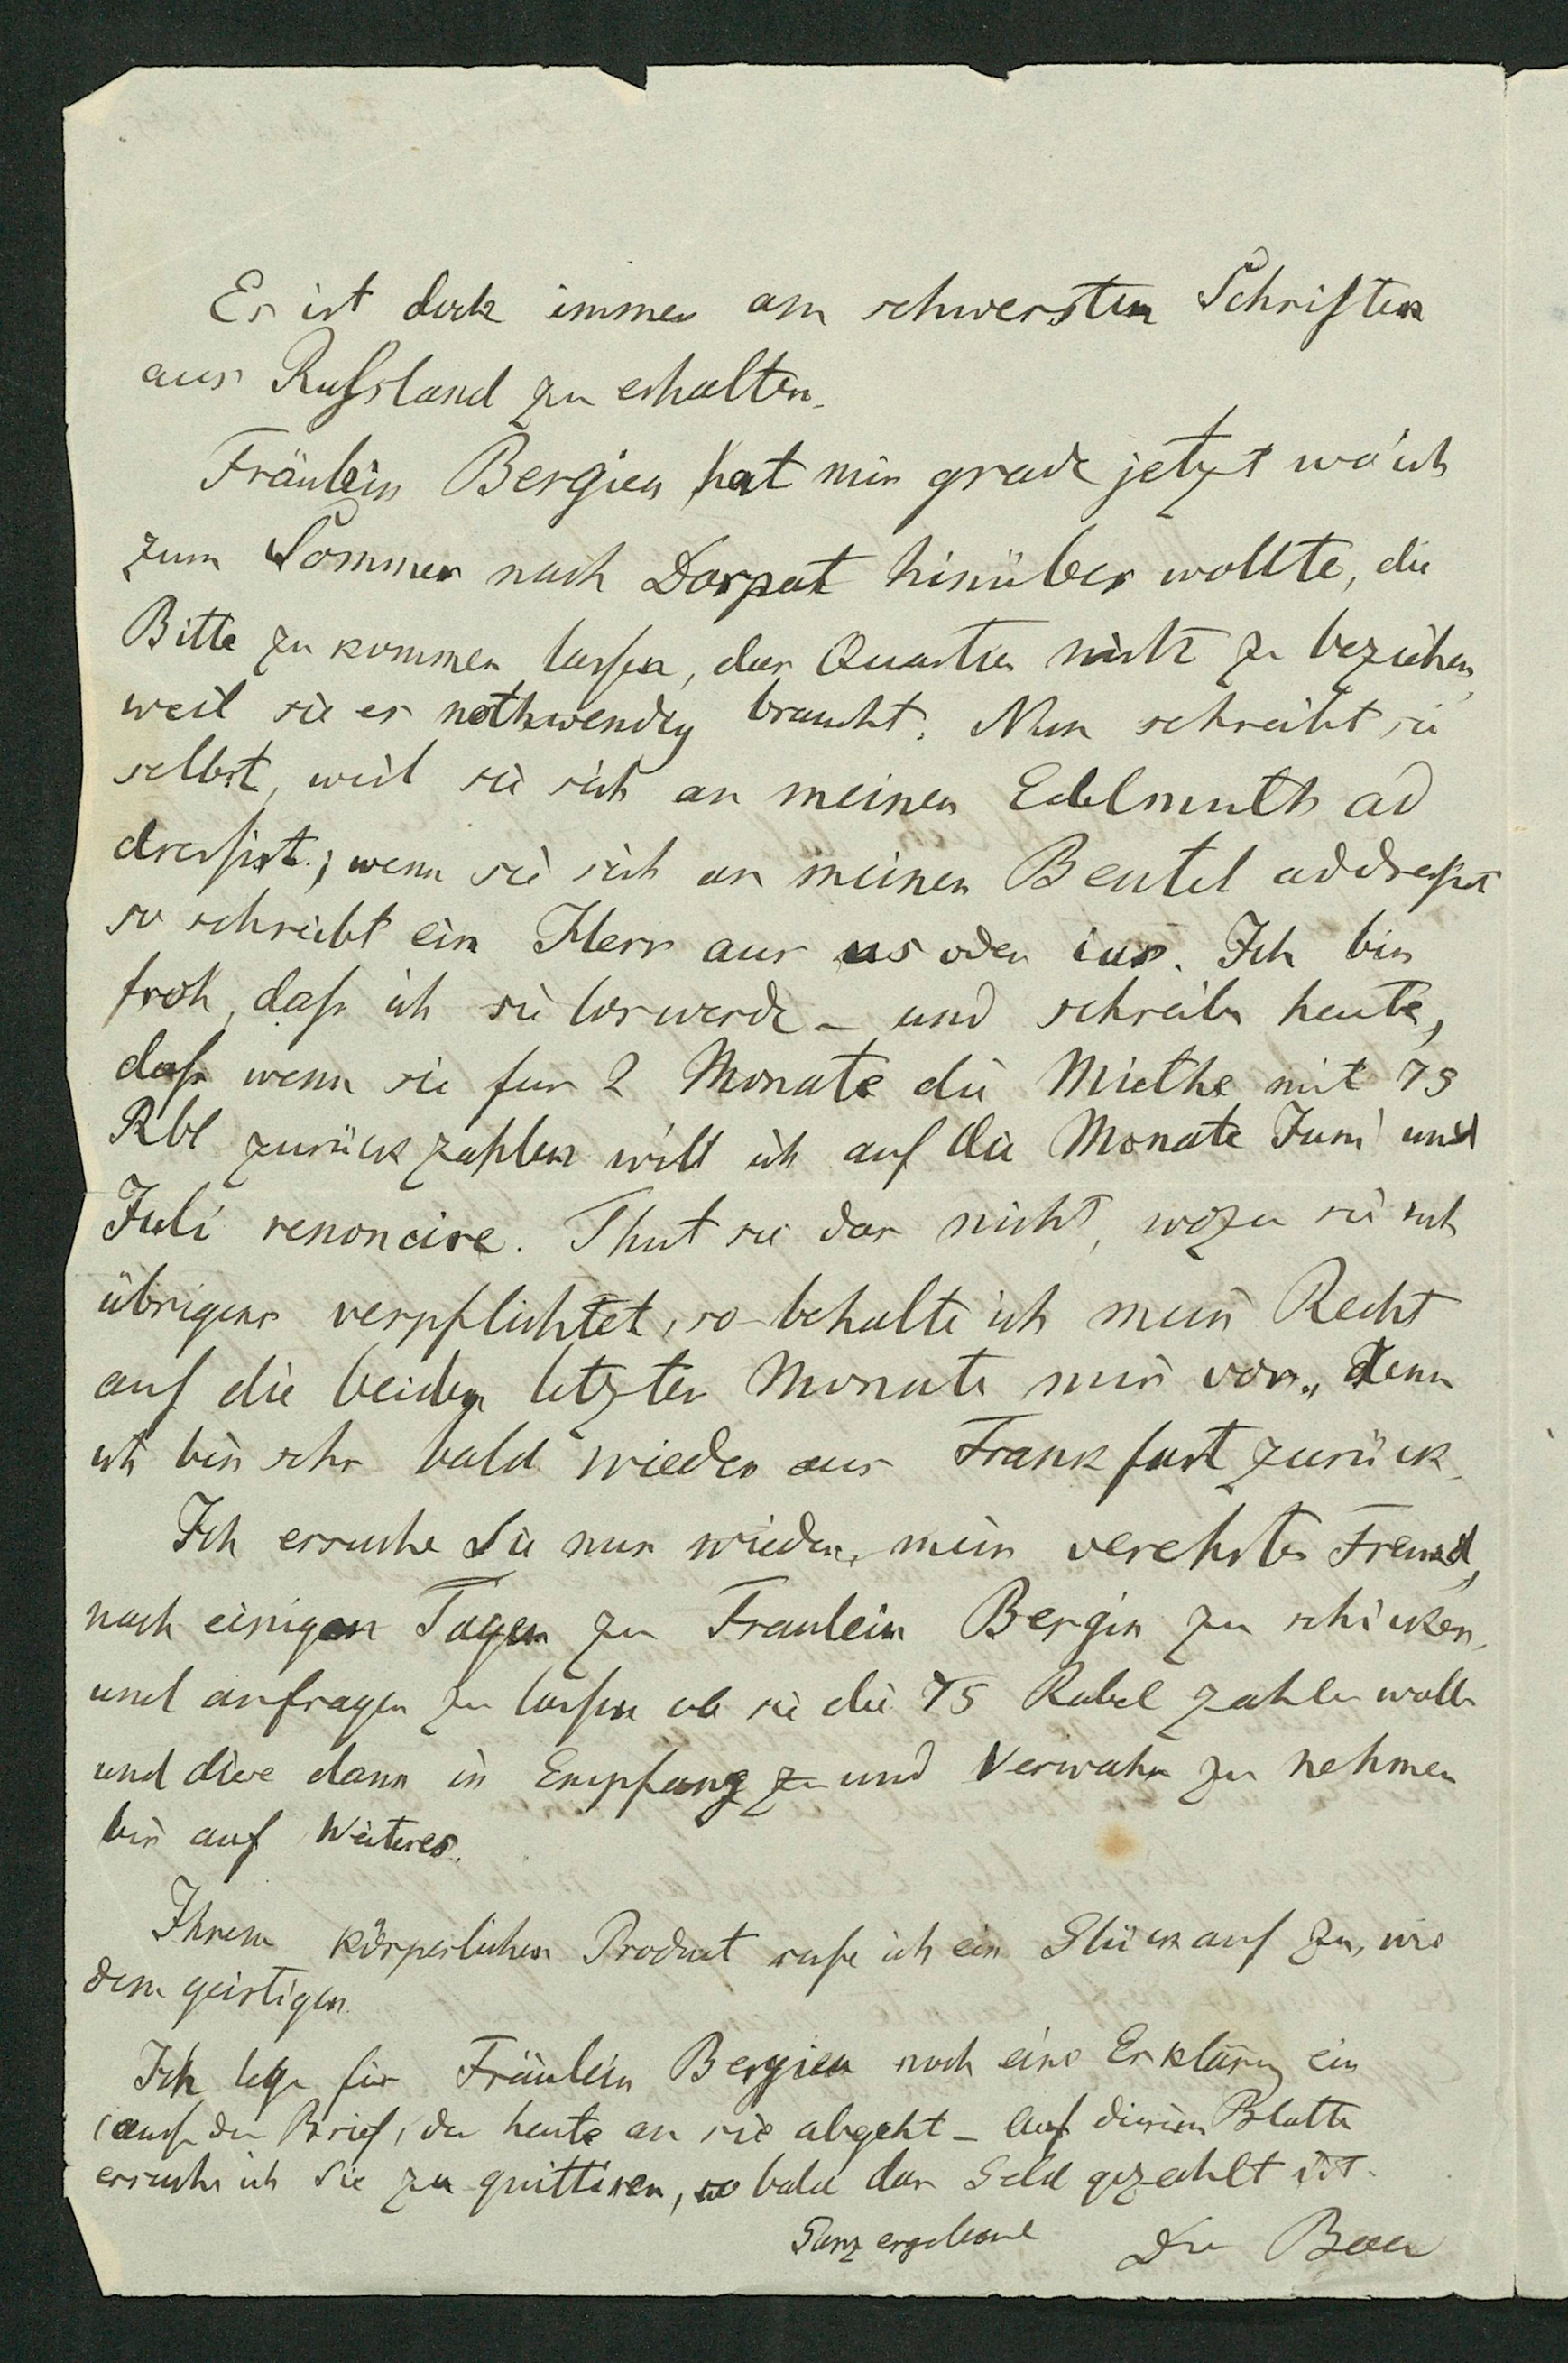 Es ist doch immer am schwersten Schriften
aus Russland zu erhalten.
Fräulein Bergien hat mir grade jetzt wo ich
zum Sommer nach Dorpat hinüber wollte, die
Bitte zu kommen lassen, das Quartier nicht zu beziehen,
weil sie es nothwendig braucht. Nun schreibt sie
selbst, weil sie sich an meinen Edelmuth ad
dressirt; wenn sie sich an meinen Beutel addressirt
so schreibt ein Herr aus us oder ius. Ich bin
froh, dass ich sie loswerde – und schreibe heute,
dass wenn sie fur 2 Monate die Miethe mit 75
Rbl zurück zahlen will ich auf die Monate Juni und
Juli renoncire. Thut sie das nicht, wozu sie sich
übrigens verpflichtet, so behalte ich mein Recht
auf die beiden letzten Monate mir vor, denn
ich bin sehr bald wieder aus Frankfurt zurück.
Ich ersuche Sie nun wieder, mein verehrter Freund,
nach einigen Tagen zu Fraulein Bergin zu schicken,
und anfragen zu lassen ob sie die 75 Rubel zahlen wolle
und diese dann in Empfang zu und Verwahr zu nehmen
bis auf Weiteres.
Ihrem körperlichen Product rufe ich ein Glück auf zu, wie
dem geistigen.
Ich lege für Fräulein Bergien noch eine Erklärung ein
(auch der Brief, der heute an sie abgeht – Auf diesem Blatte
ersuche ich Sie zu quittiren, so bald das Geld gezahlt ist.
Ganz ergebenst Dr Baer